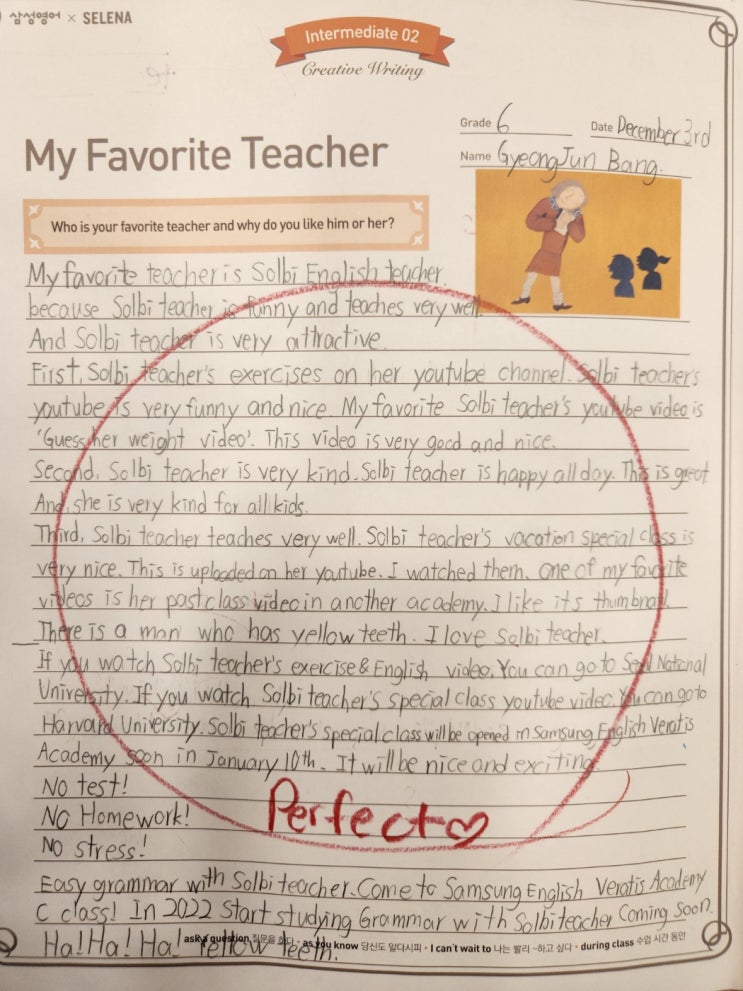 삼성영어 × SELENA
Intermediate 02
Creative Writing
Grade 6
Date December 3rd
My Favorite Teacher
Name GyeongJun Bang.
Who is your favorite teacher and why do you like him or her?
My favorite teacher is Solbi English teacher
because Solbi teacher is funny and teaches very well.
And Solbi teacher is very attractive.
First, Solbi teacher's exercises on her youtube channel. Solbi teacher's
youtube is very funny and nice. My favorite Solbi teacher's youtube video is
'Guess her weight video'. This video is very good and nice.
Second, Solbi teacher is very kind. Solbi teacher is happy all day. This is great
And, she is very kind for all kids.
Third, Solbi teacher teaches very well. Solbi teacher's vacation special class is
very nice. This is uploaded on her youtube. I watched them. One of my favorite
videos is her past class video in another academy. I like it's thumbnail.
There is a man who has yellow teeth. I love Solbi teacher.
If you watch Solbi teacher's exercise & English video. You can go to Seoul National
University. If you watch Solbi teacher's special class youtube video. You can go to
Harvard University. Solbi teacher's special class will be opened in Samsung English Veratis
Academy soon in January 10th. It will be nice and exciting.
No test!
No Homework!
Perfect♡
No stress!
Easy grammar with Solbi teacher. Come to Samsung English Veratis Academy
C class! In 2022 Start studying Grammar with Solbi teacher Coming soon.
Ha! Ha! Ha! Yellow teeth.
ask a question 질문을 하다 · as you know 당신도 알다시피 · I can't wait to 나는 빨리 ~하고 싶다 · during class 수업 시간 동안